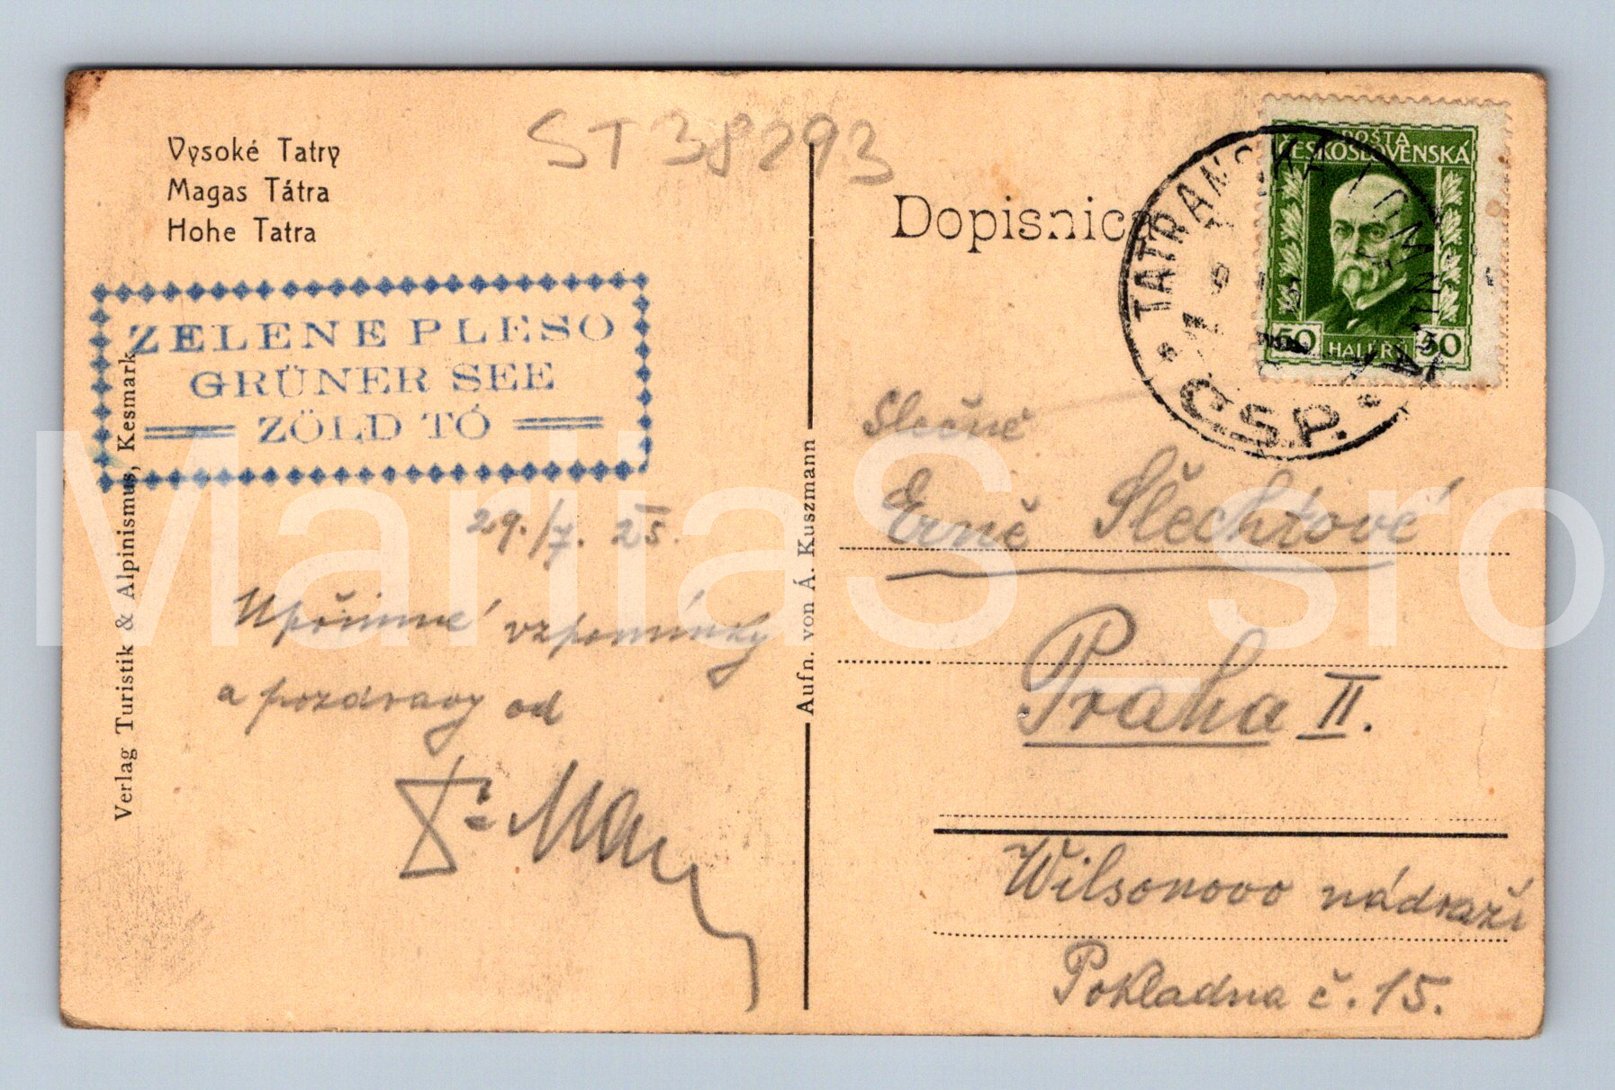 ST38293
Vysoké Tatry
Magas Tátra
Hohe Tatra
ZELENE PLESO
GRÜNER SEE
ZÖLD TÓ
Verlag Turistik & Alpinismus, Kesmark
29./7. 25.
Upřimné vzpomínky
a pozdravy od
Aufn. von Á. Kuszmann
Dopisnica
POŠTA
ČESKOSLOVENSKÁ
50 HALÉŘŮ 50
TATRANSKÁ LOMNICA
Č.S.P.
Slečně
Erně Šlechtové
Praha II.
Wilsonovo nádraží
Pokladna č. 15.
MarijaS_sro